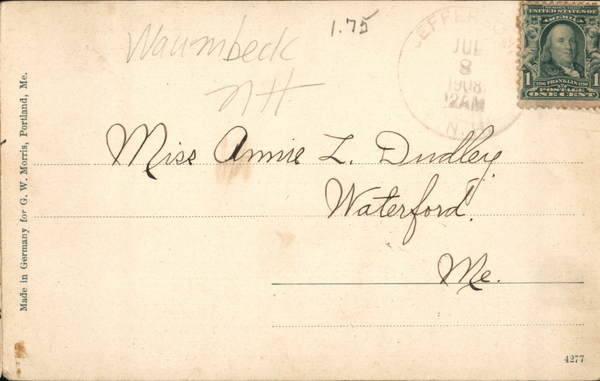 Waumbeck
NH
1.75
JEFFERSON
JUL
8
1908
12AM
N.H.
UNITED STATES OF
AMERICA
1 FRANKLIN 1
POSTAGE
ONE CENT
Miss Annie L. Dudley,
Waterford.
Me.
Made in Germany for G. W. Morris, Portland, Me.
4277